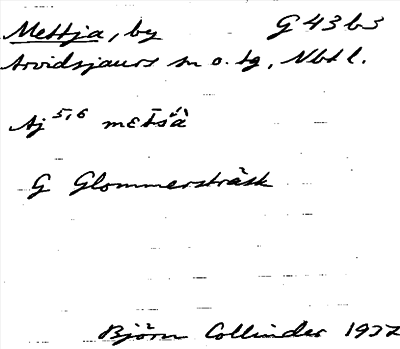 Mettja, by G 43 b3
Arvidsjaurs sn o. tg, Nbtl.
Aj 5,6 mɛt̄s̕ā̀
G Glommersträsk
Björn Collinder 1937